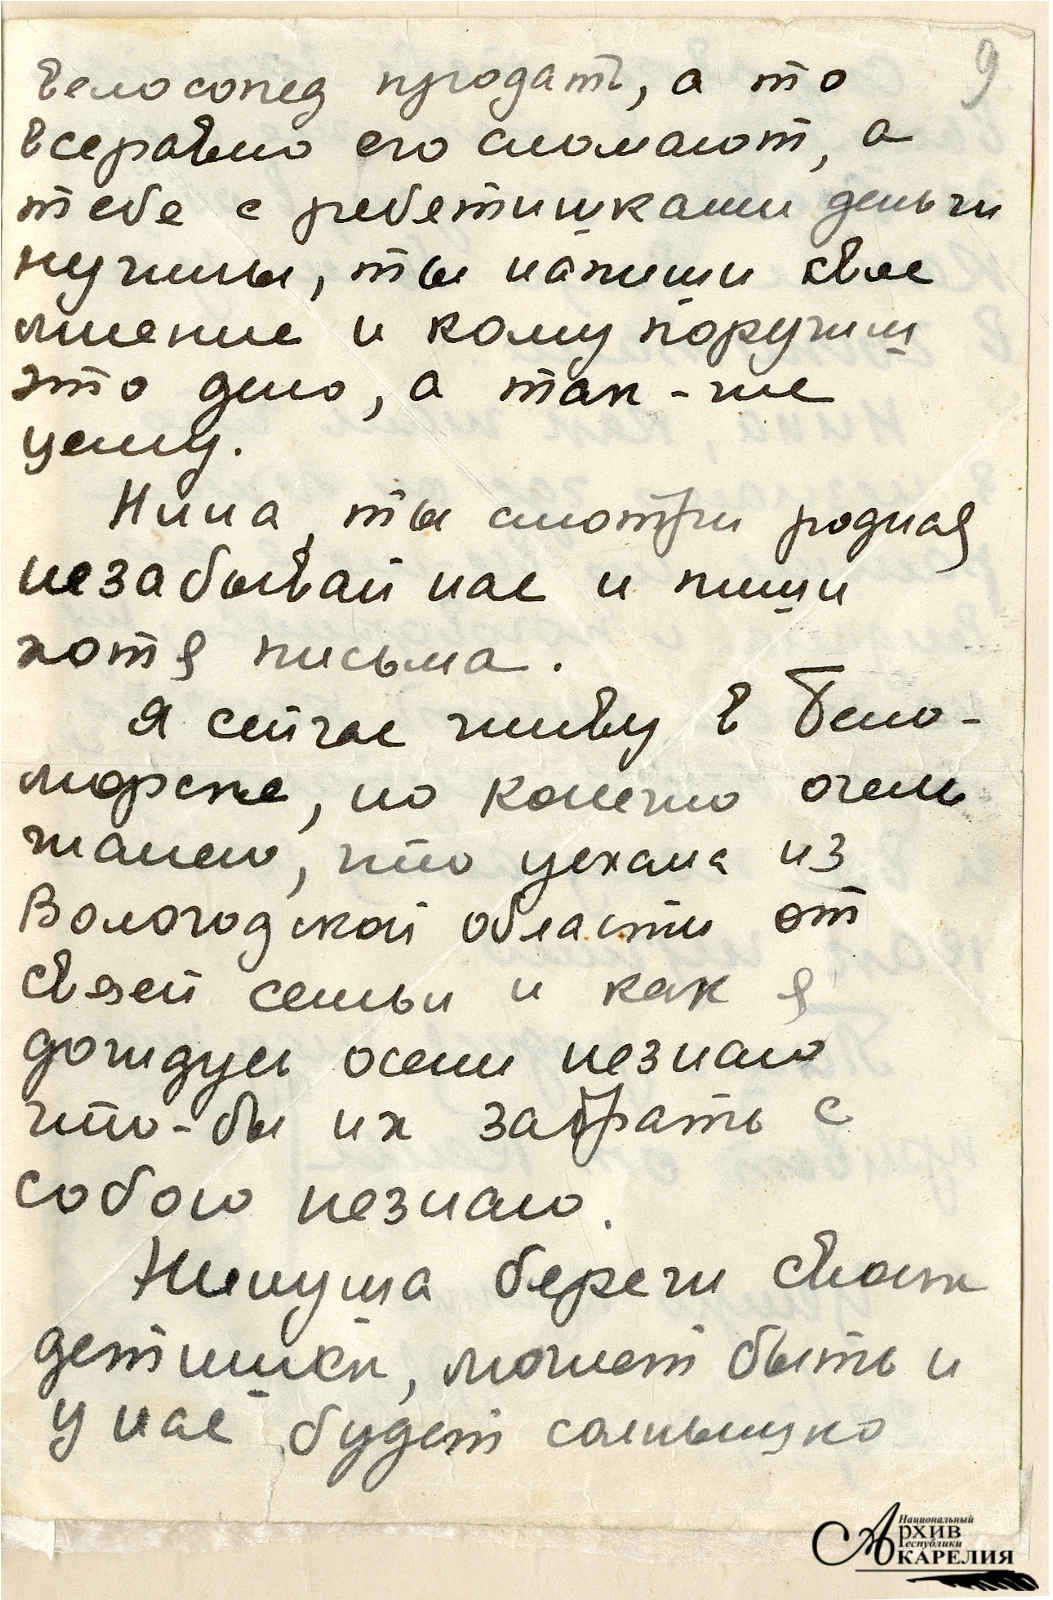 9
велосопед продать, а то
всеравно его сломают, а
тебе с ребетишками деньги
нужны, ты напиши свое
мнение и кому поручиш
это дело, а так-же
цену.
Нина, ты смотри родная
незабывай нас и пиши
хотя письма.
Я сейчас живу в Бело-
морске, но конечно очень
жалею, что уехала из
Вологодской области от
своей семьи и как я
дожидусь осени незнаю
что-бы их забрать с
собою незнаю.
Нинуша береги своих
детишек, может быть и
у нас будет солнышко
Национальный
Архив
Республики
Карелия